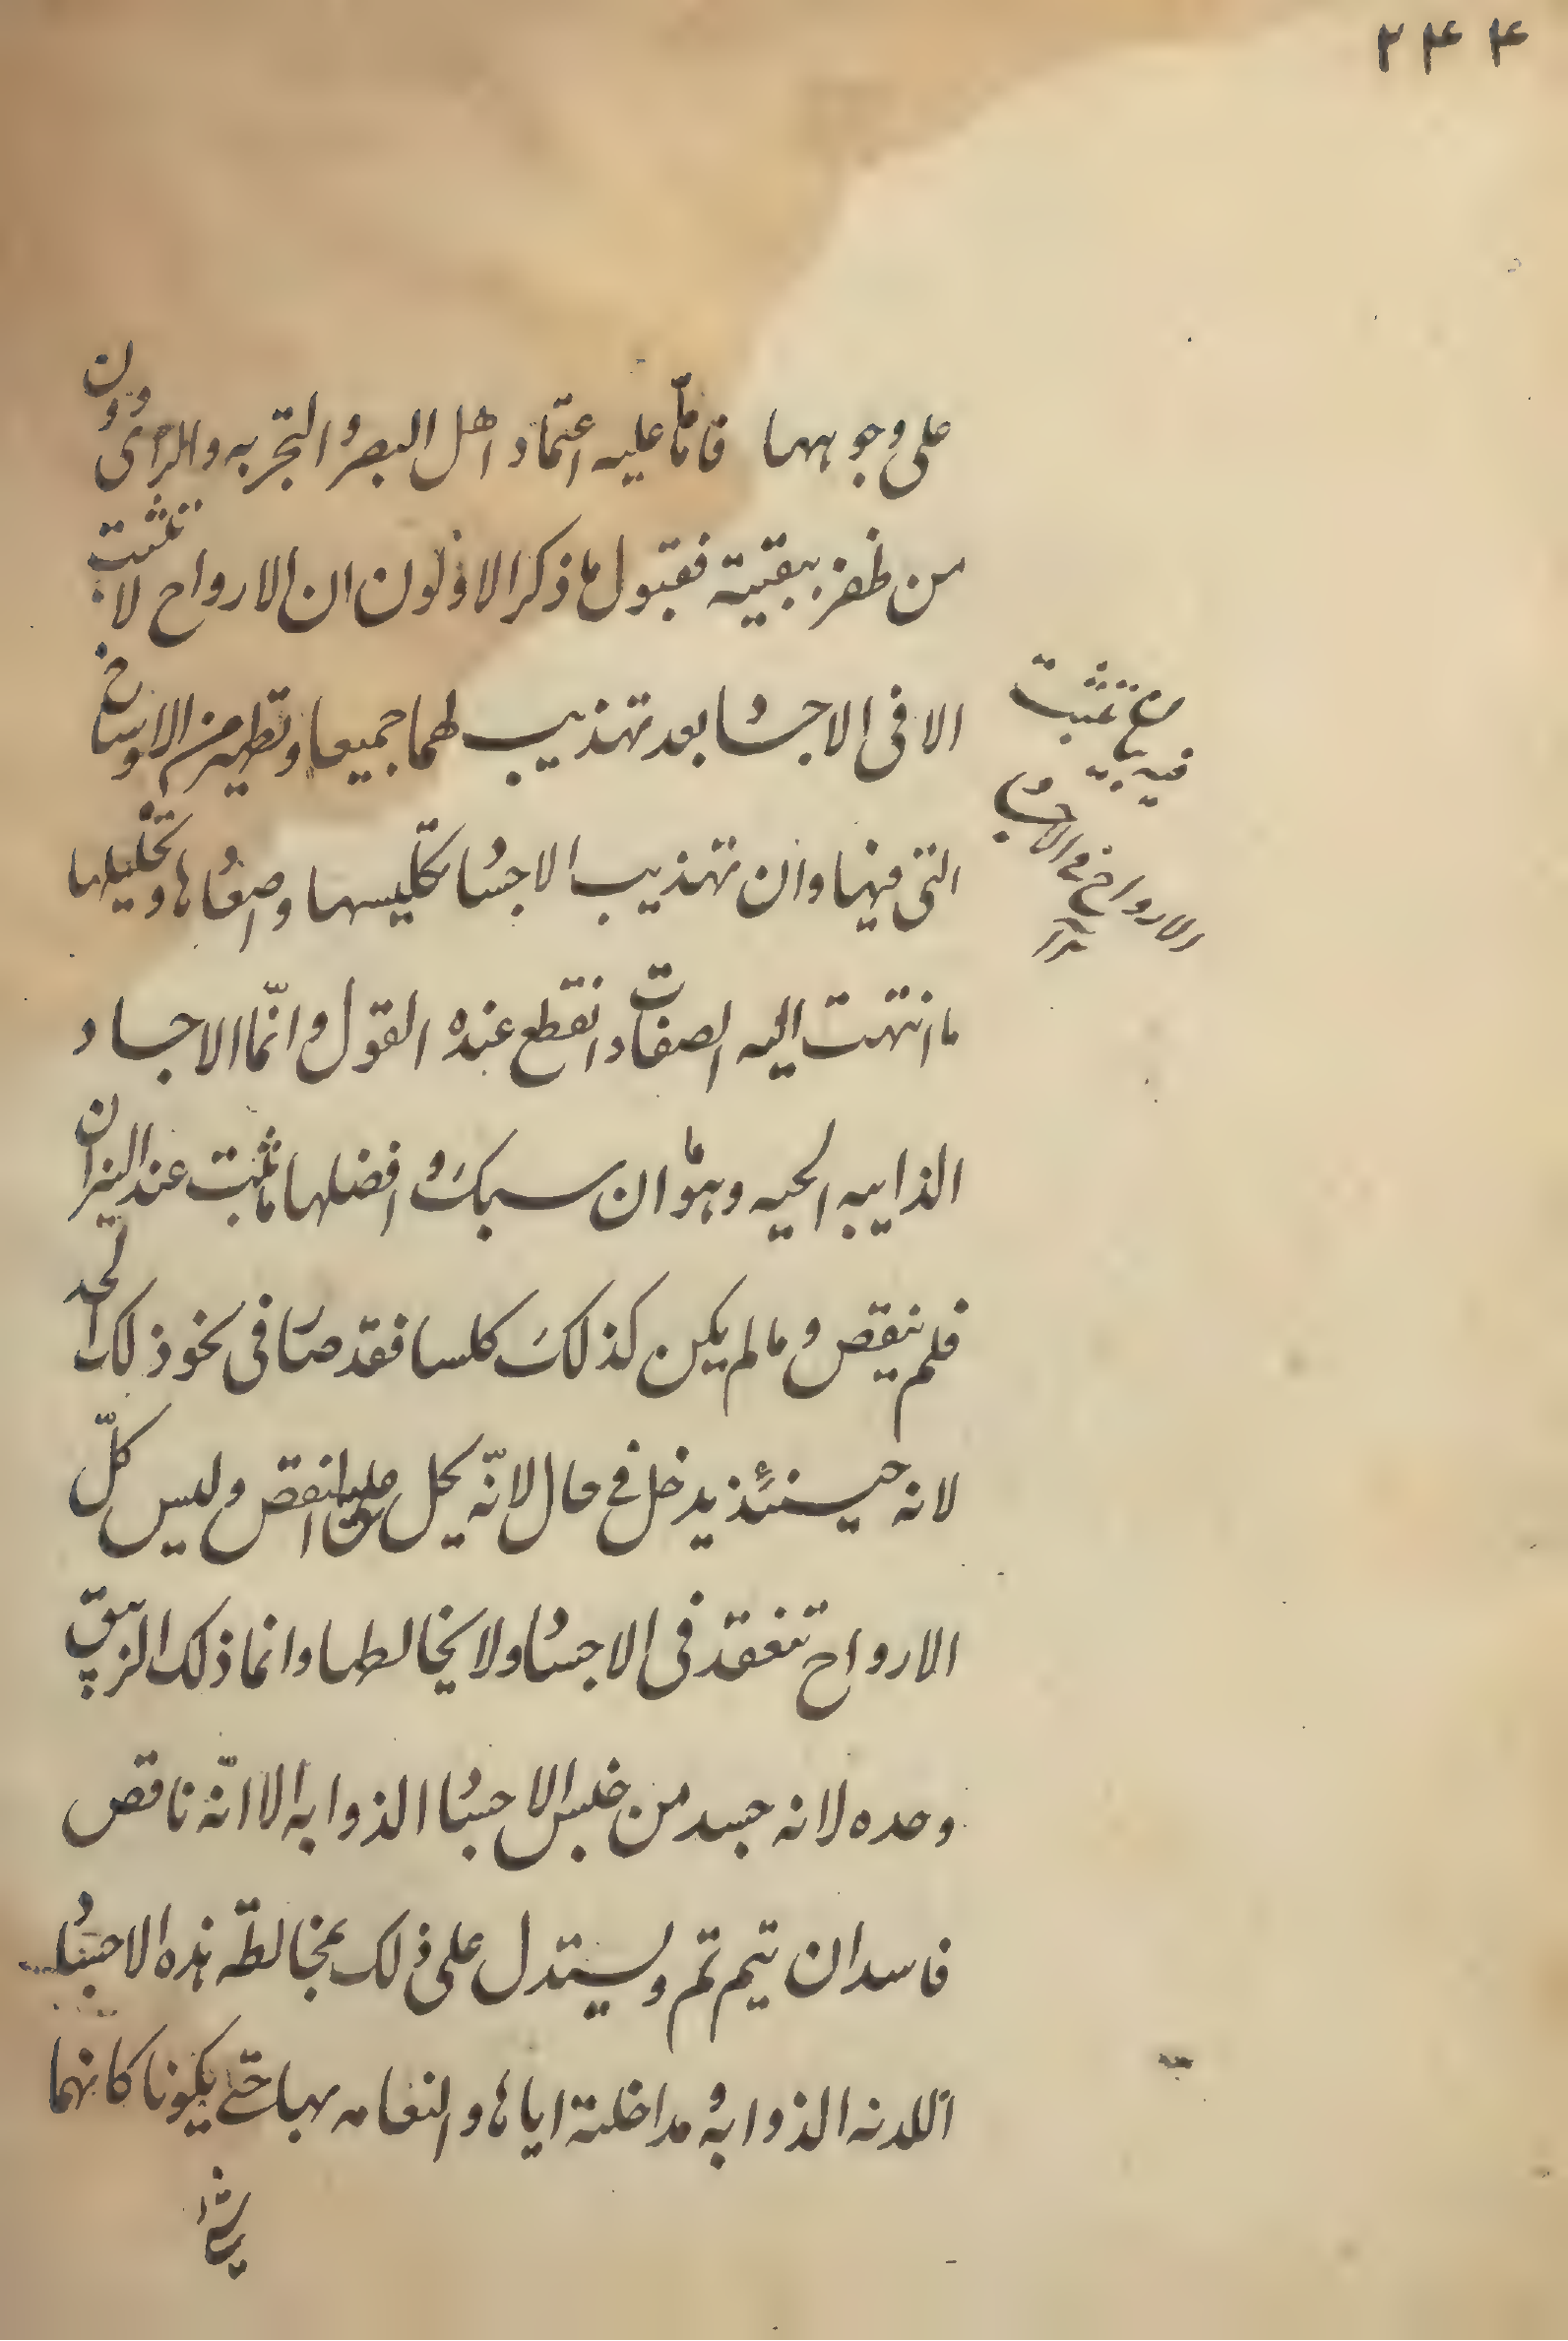 ۲۴۴
على وجوهها فاما ما عليه اعتماد اهل البصر و التجربه والمراى دون
من ظفر ببقيته فقبول ما ذكر الاولون ان الارواح لا تثبت
الا فى الاجساد بعد تهذيب لهما جميعا وتطهير من الاوساخ
التى فيها وان تهذيب الاجساد تكليسها واصعادها وتحليلها
ما انتهت اليه الصفات وانقطع عنده القول وانّما الاجساد
الذايبه الحيه وهو ما ان سبك و افضلها ما ثبت عند النيران
فلم ينقص وما لم يكن كذلك كلسا فقد صار فى نحو ذلك الحد
لانه حينئذ يدخل فى حال لانّه يحل النقص وليس كلّ
الارواح تنعقد فى الاجساد ولا يخالطها وانما ذلك الزيبق
وحده لانه جسد من جنس الاجساد الذوابه الا انّه ناقص
فاسد ان تيم تم و ليستدل على ذلك بمخالطّه هذه الاجساد
اللدنه الذوابه و مداخلته اياها و التغامه بها حتى يكونا كانهما
شئ
فيه بيان تثبت
الارواح فى الاجساد